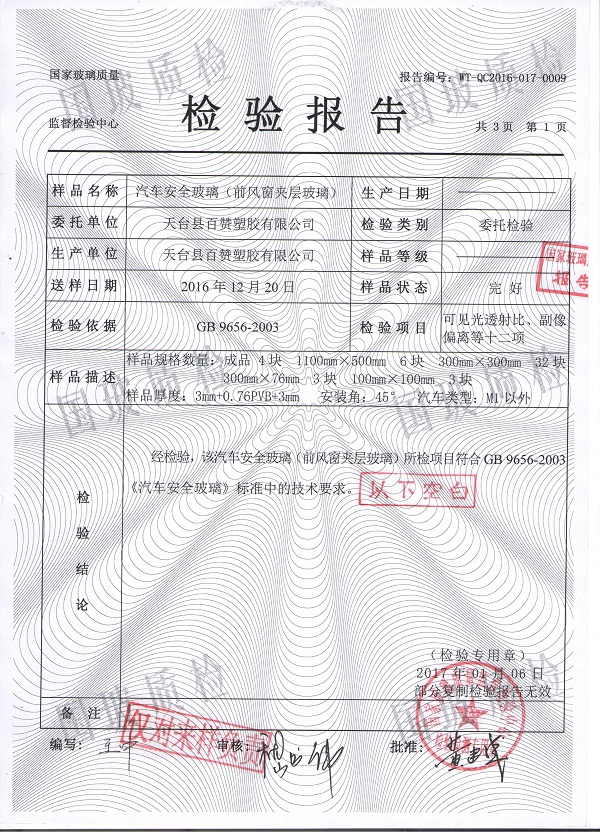 国家玻璃质量
监督检验中心
检验报告
报告编号：WT-QC2016-017-0009
共 3 页 第 1 页
样品名称 汽车安全玻璃（前风窗夹层玻璃） 生产日期
委托单位 天台县百赞塑胶有限公司 检验类别 委托检验
生产单位 天台县百赞塑胶有限公司 样品等级
国家玻璃
报告
送样日期 2016 年 12 月 20 日 样品状态 完 好
检验依据 GB 9656-2003 检验项目 可见光透射比、副像
偏离等十二项
样品描述 样品规格数量：成品 4块 1100mm×500mm 6块 300mm×300mm 32块
300mm×76mm 3块 100mm×100mm 3块
样品厚度：3mm+0.76PVB+3mm 安装角：45° 汽车类型：M1 以外
检验结论
经检验，该汽车安全玻璃（前风窗夹层玻璃）所检项目符合 GB 9656-2003
《汽车安全玻璃》标准中的技术要求。
以下空白
（检验专用章）
2017 年 01 月 06 日
部分复制检验报告无效
备 注
仅对来样负责
编写： 审核： 批准：
国玻质检
国玻质检
国玻质检
国玻质检
国玻质检
国玻质检